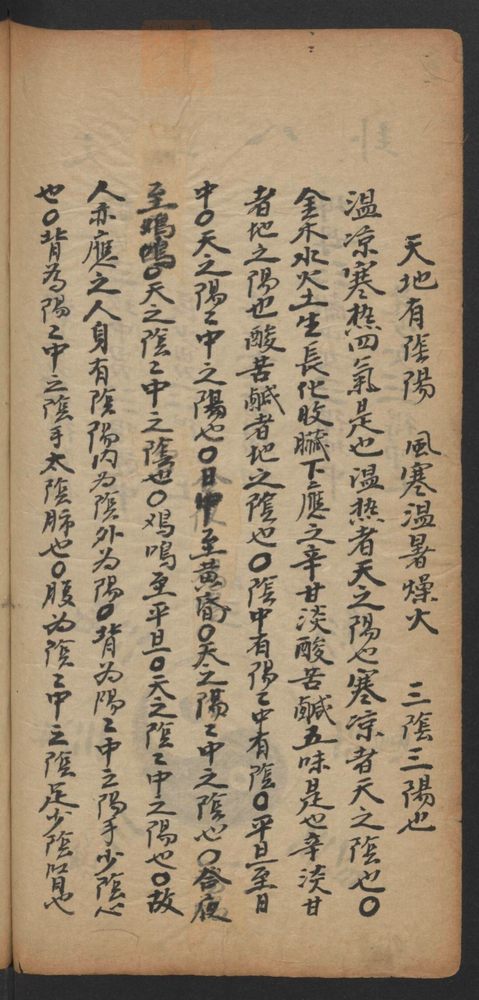 天地有陰陽　風寒温暑燥火　三陰三陽也
溫凉寒热四氣是也温热者天之陽也寒凉者天之陰也〇
金木水火土生長化收臟下應之辛甘淡酸苦鹹五味是也辛淡甘
者地之陽也酸苦鹹者地之陰也〇陰中有陽〻中有陰〇平旦至日
中〇天之陽〻中之陽也〇日中至黄昏〇天之陽〻中之陰也〇合夜
至鳴〇天之陰〻中之陰也〇鸡鳴至平旦〇天之陰〻中之陽也〇故
人亦應之人身有陰陽内为陰外为陽〇背为陽〻中之陽手少陰心
也〇背為陽〻中之陰手太陰肺也〇腹为陰〻中之陰足少陰腎也